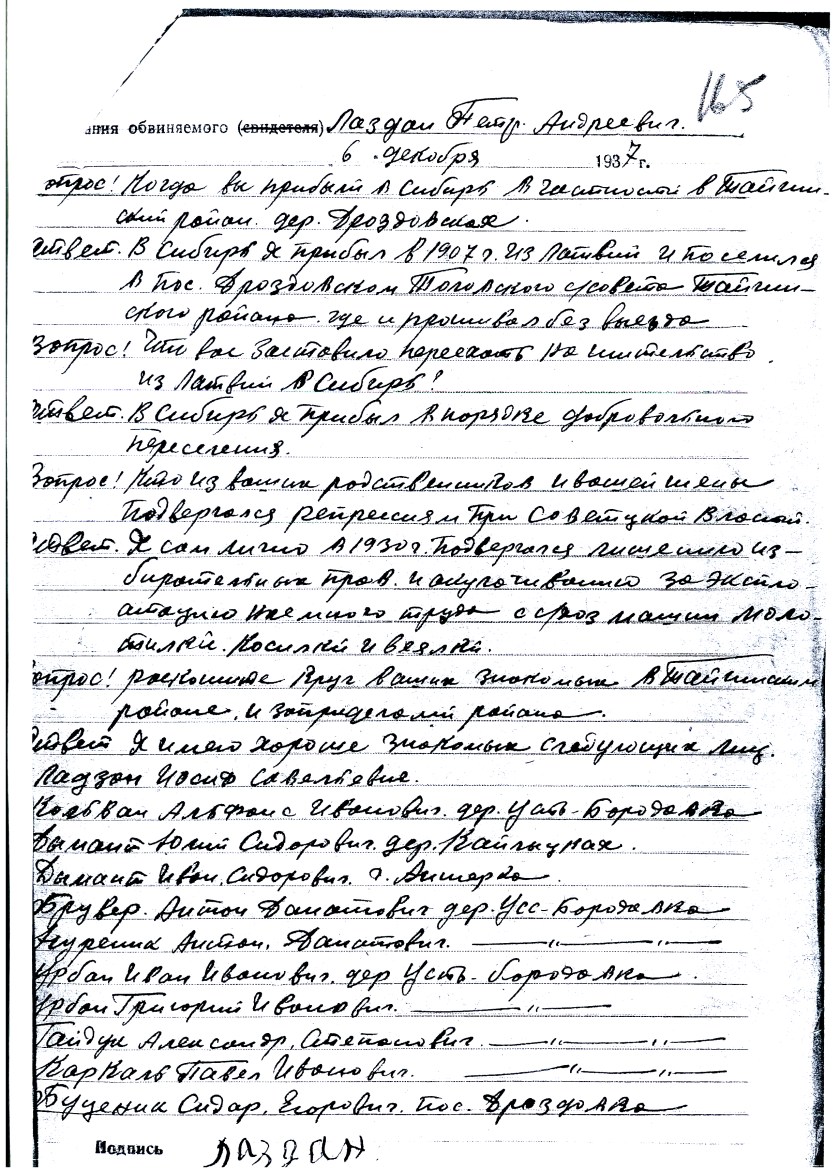 165
ания обвиняемого (свидетеля) Лаздан Петр. Андреевич.
6 декабря 1937 г.
опрос! Когда вы прибыли в Сибирь в частности в Тайгин-
ский район. дер. Дроздовская.
Ответ. В Сибирь я прибыл в 1907 г. из Латвии и поселился
в пос. Дроздовском совета Тайгин-
ского района где и проживал без выезда
Вопрос! Что вас заставило переехать на жительство
из Латвии в Сибирь?
Ответ. В Сибирь я прибыл в порядке добровольного
переселения.
Вопрос! Кто из ваших родственников и вашей жены
подвергался репрессиям при советской власти.
Ответ. Я сам лично в 1930 г. подвергался лишению из-
бирательных прав. и за экспло-
атацию наемного труда с/хоз машин моло-
тилки. Косилки и веялки.
опрос! раскажите круг ваших знакомых в Тайгинском
районе, и запределами района.
Ответ Я имею хороше знакомых следующих лиц.
Ладзан Иосиф Савельевич.
Альфонс Иванович. дер. Усть-Бородавка
Дымант Юлий Сидорович. дер.
Дымант Иван. Сидорович. г. Анжерка.
Брувер. Антон Данатович дер. Усс-Бородавка
Антон. Данатович. —〃—
Урбан Иван Иванович. дер Усть-Бородавка.
Урбан Григорий Иванович. —〃—
Гайдук Александр. Степанович. —〃— —〃—
Каркаль Павел Иванович. —〃— —〃—
Буценик Сидар. Егорович. пос. Дроздовка
Подпись ЛАЗДАН